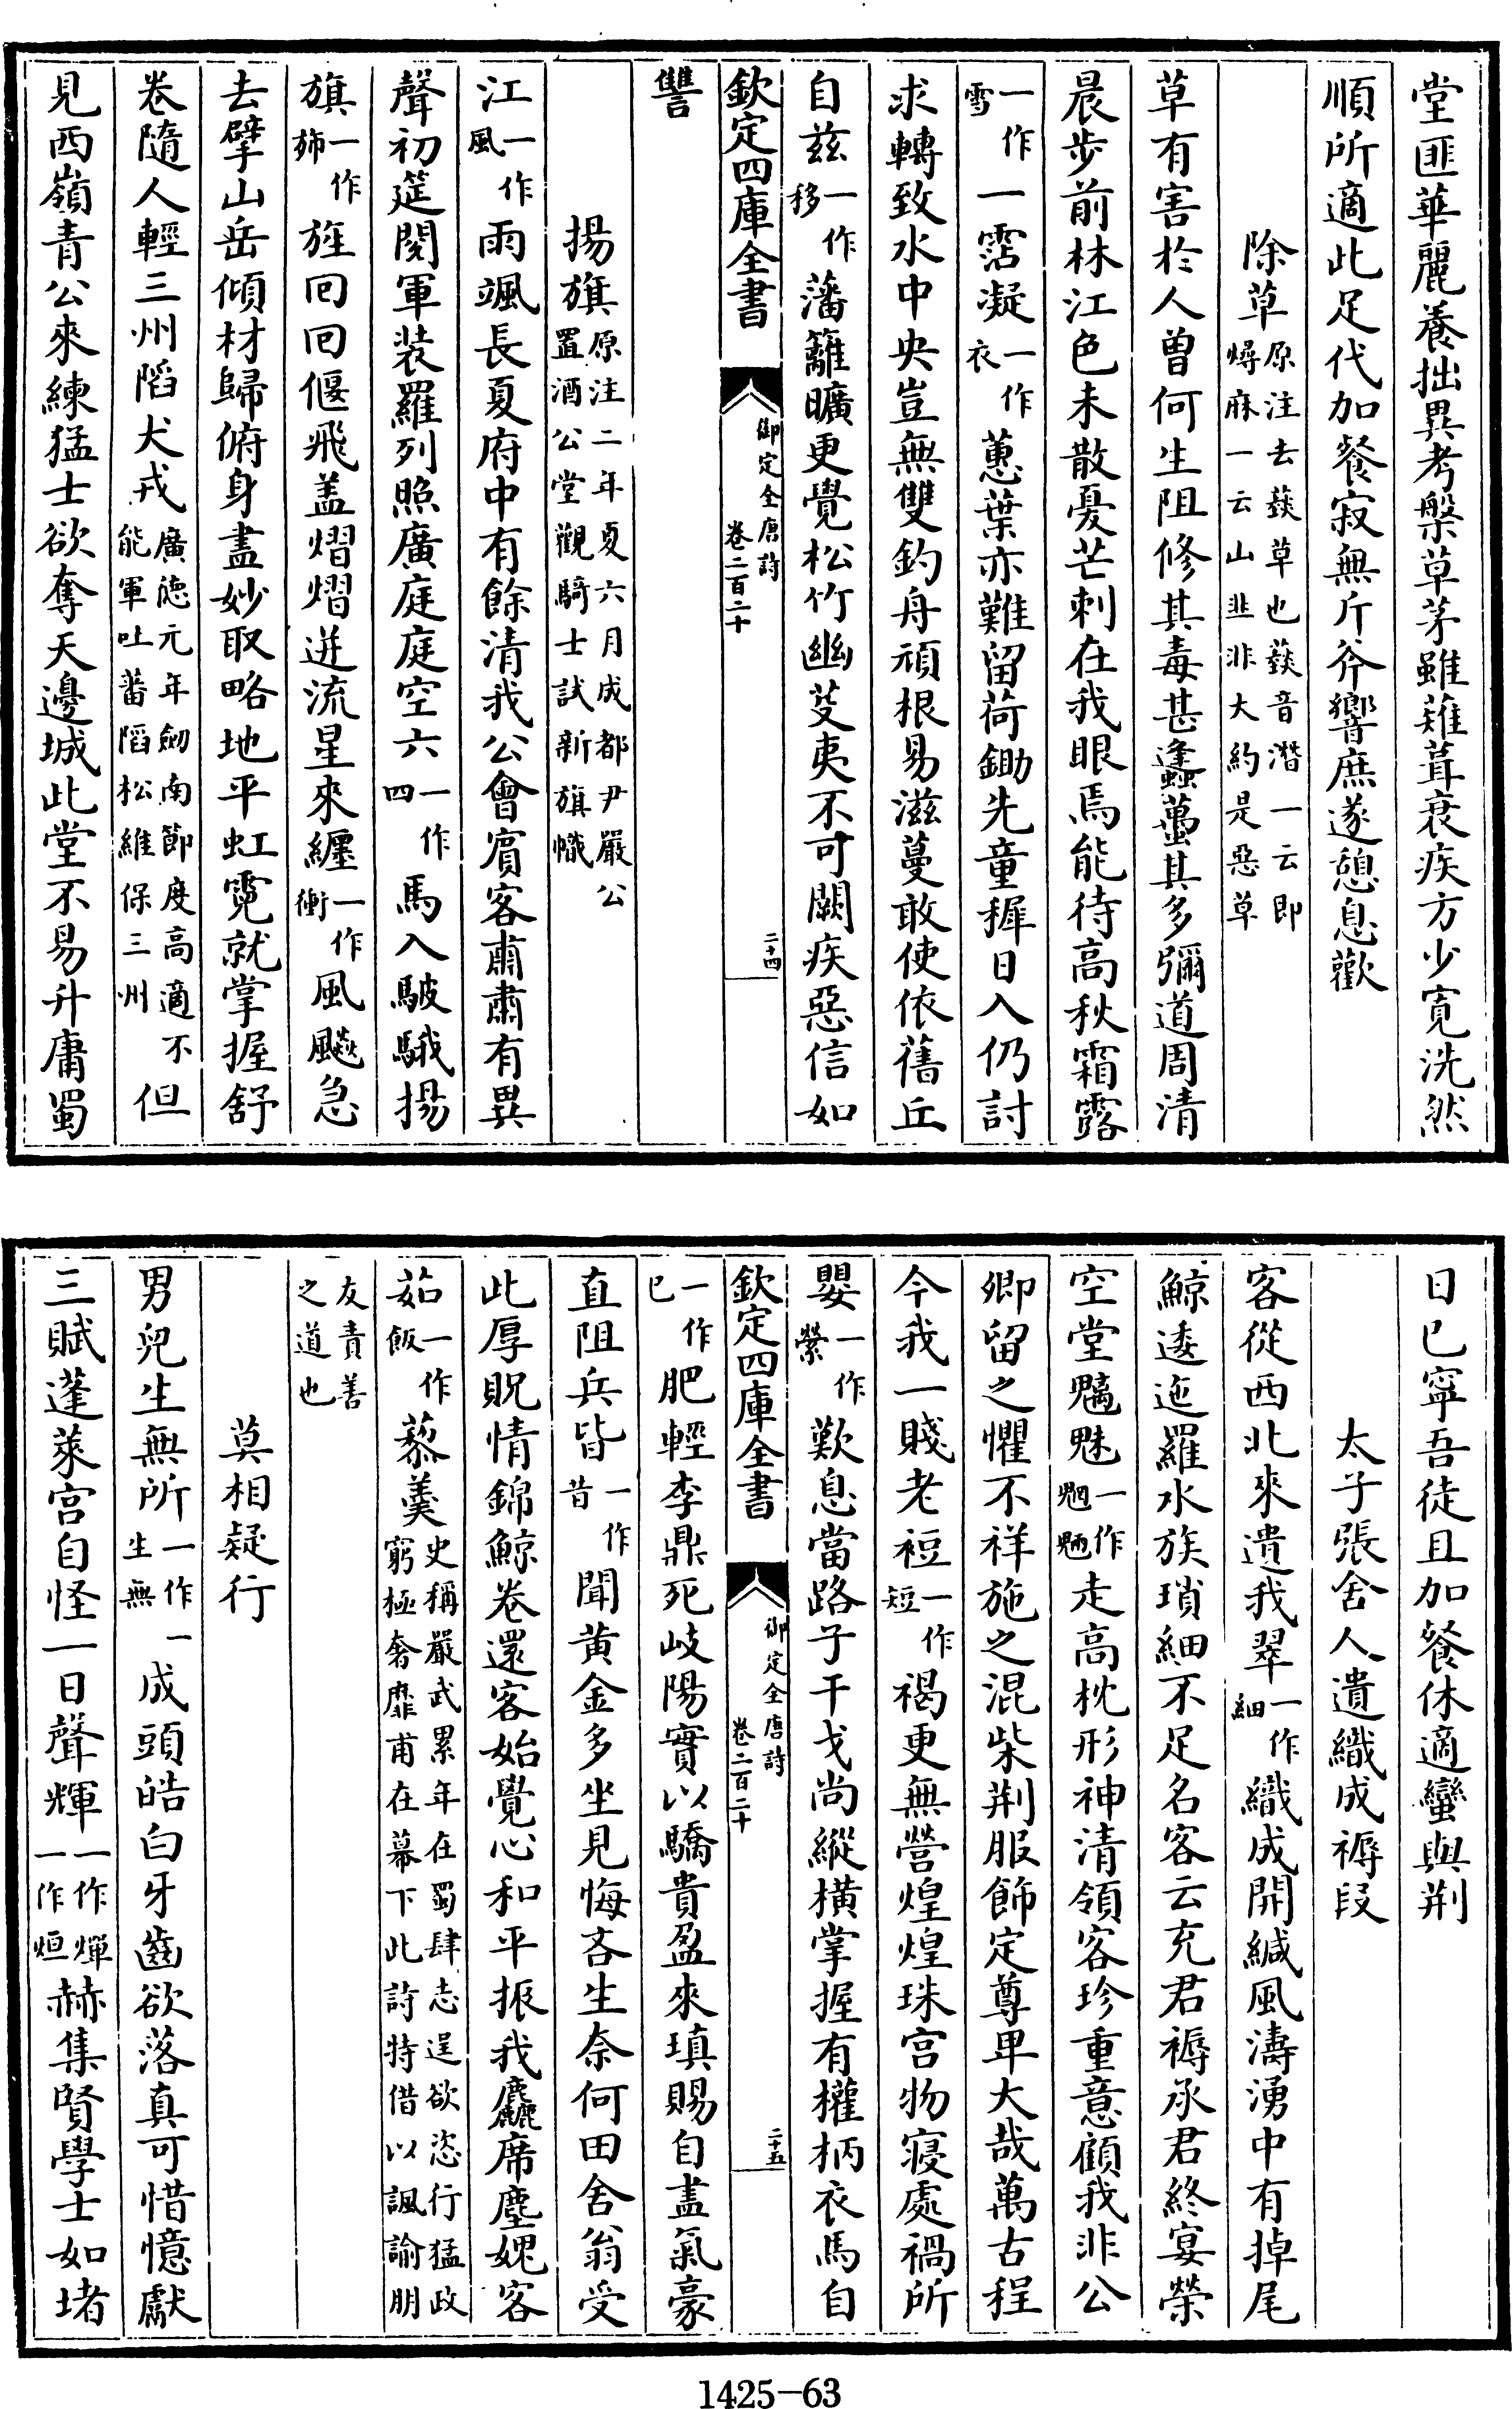 堂匪華麗養拙異考槃草茅雖薙葺衰疾方少寛洗然
順所適此足代加餐寂無斤斧響庶遂憩息歡
除草原注去䕭草也䕭音潛一云即燖麻一云山韭非大約是惡草
草有害於人曽何生阻修其毒甚蠭蠆其多彌道周清
晨步前林江色未散憂芒刺在我眼焉能待高秋霜露
一作雪一霑凝一作衣蕙葉亦難留荷鋤先童穉日入仍討
求轉致水中央豈無雙釣舟頑根易滋蔓敢使依舊丘
自兹一作移藩籬曠更覺松竹幽芟夷不可闕疾惡信如
欽定四庫全書
御定全唐詩
卷二百二十
二十四
讐
揚旗原注二年夏六月成都尹嚴公置酒公堂觀騎士試新旗幟
江一作風雨颯長夏府中有餘清我公會賓客肅肅有異
聲初筵閱軍装羅列照廣庭庭空六一作四馬入駊騀揚
旗一作斾旌回回偃飛盖熠熠迸流星來纏一作衝風飈急
去擘山岳傾材歸俯身盡妙取略地平虹霓就掌握舒
卷隨人輕三州䧟犬戎廣德元年劒南節度高適不能軍吐蕃䧟松維保三州但
見西嶺青公來練猛士欲奪天邊城此堂不易升庸蜀
日已寧吾徒且加餐休適蠻與荆
太子張舍人遺織成褥段
客從西北來遺我翠一作細織成開緘風濤湧中有掉尾
鯨逶迤羅水族瑣細不足名客云充君褥承君終宴榮
空堂魑魅一作魍魎走高枕形神清領客珍重意顧我非公
卿留之懼不祥施之混柴荆服飾定尊卑大哉萬古程
今我一賤老裋一作短褐更無營煌煌珠宫物寢處禍所
嬰一作縈歎息當路子干戈尚縱橫掌握有權柄衣馬自
欽定四庫全書
御定全唐詩
卷二百二十
二十五
一作已肥輕李鼎死岐陽實以驕貴盈來瑱賜自盡氣豪
直阻兵皆一作昔聞黄金多坐見悔吝生奈何田舍翁受
此厚貺情錦鯨卷還客始覺心和平振我麤席塵媿客
茹一作飯藜羮史稱嚴武累年在蜀肆志逞欲恣行猛政窮極奢靡甫在幕下此詩特借以諷諭朋
友責善之道也
莫相疑行
男兒生無所一作一生無成頭皓白牙齒欲落真可惜憶獻
三賦蓬萊宫自怪一日聲輝一作燀一作烜赫集賢學士如堵
1425-63